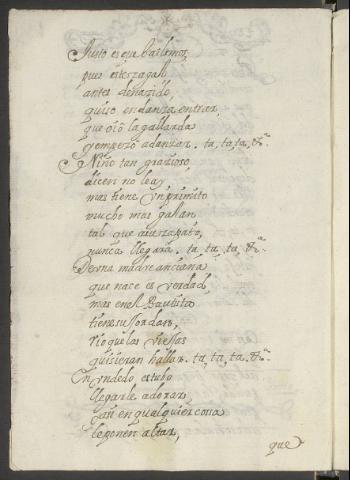 Justo es que bailemos,
pues este zagal
antes de nazido
quiso en danza entrar,
que oiò la gallarda
y empezò a danzar. ta, ta, ta, &ª.
Niño tan grazioso
dicen no le ay
mas tiene un primito
mucho mas galan
tal que a su zapato,
nunca llegarà. ta, ta, ta, &ª.
De una madre anciana
que nace es verdad
mas en el Bautista
tiene su Jordan,
rio que las viejas
quisieran hallar. ta, ta, ta, &ª.
Un dedo, estubo
llegarle adorar,
y aũ en qualquier cosa
le ponen altar,
que